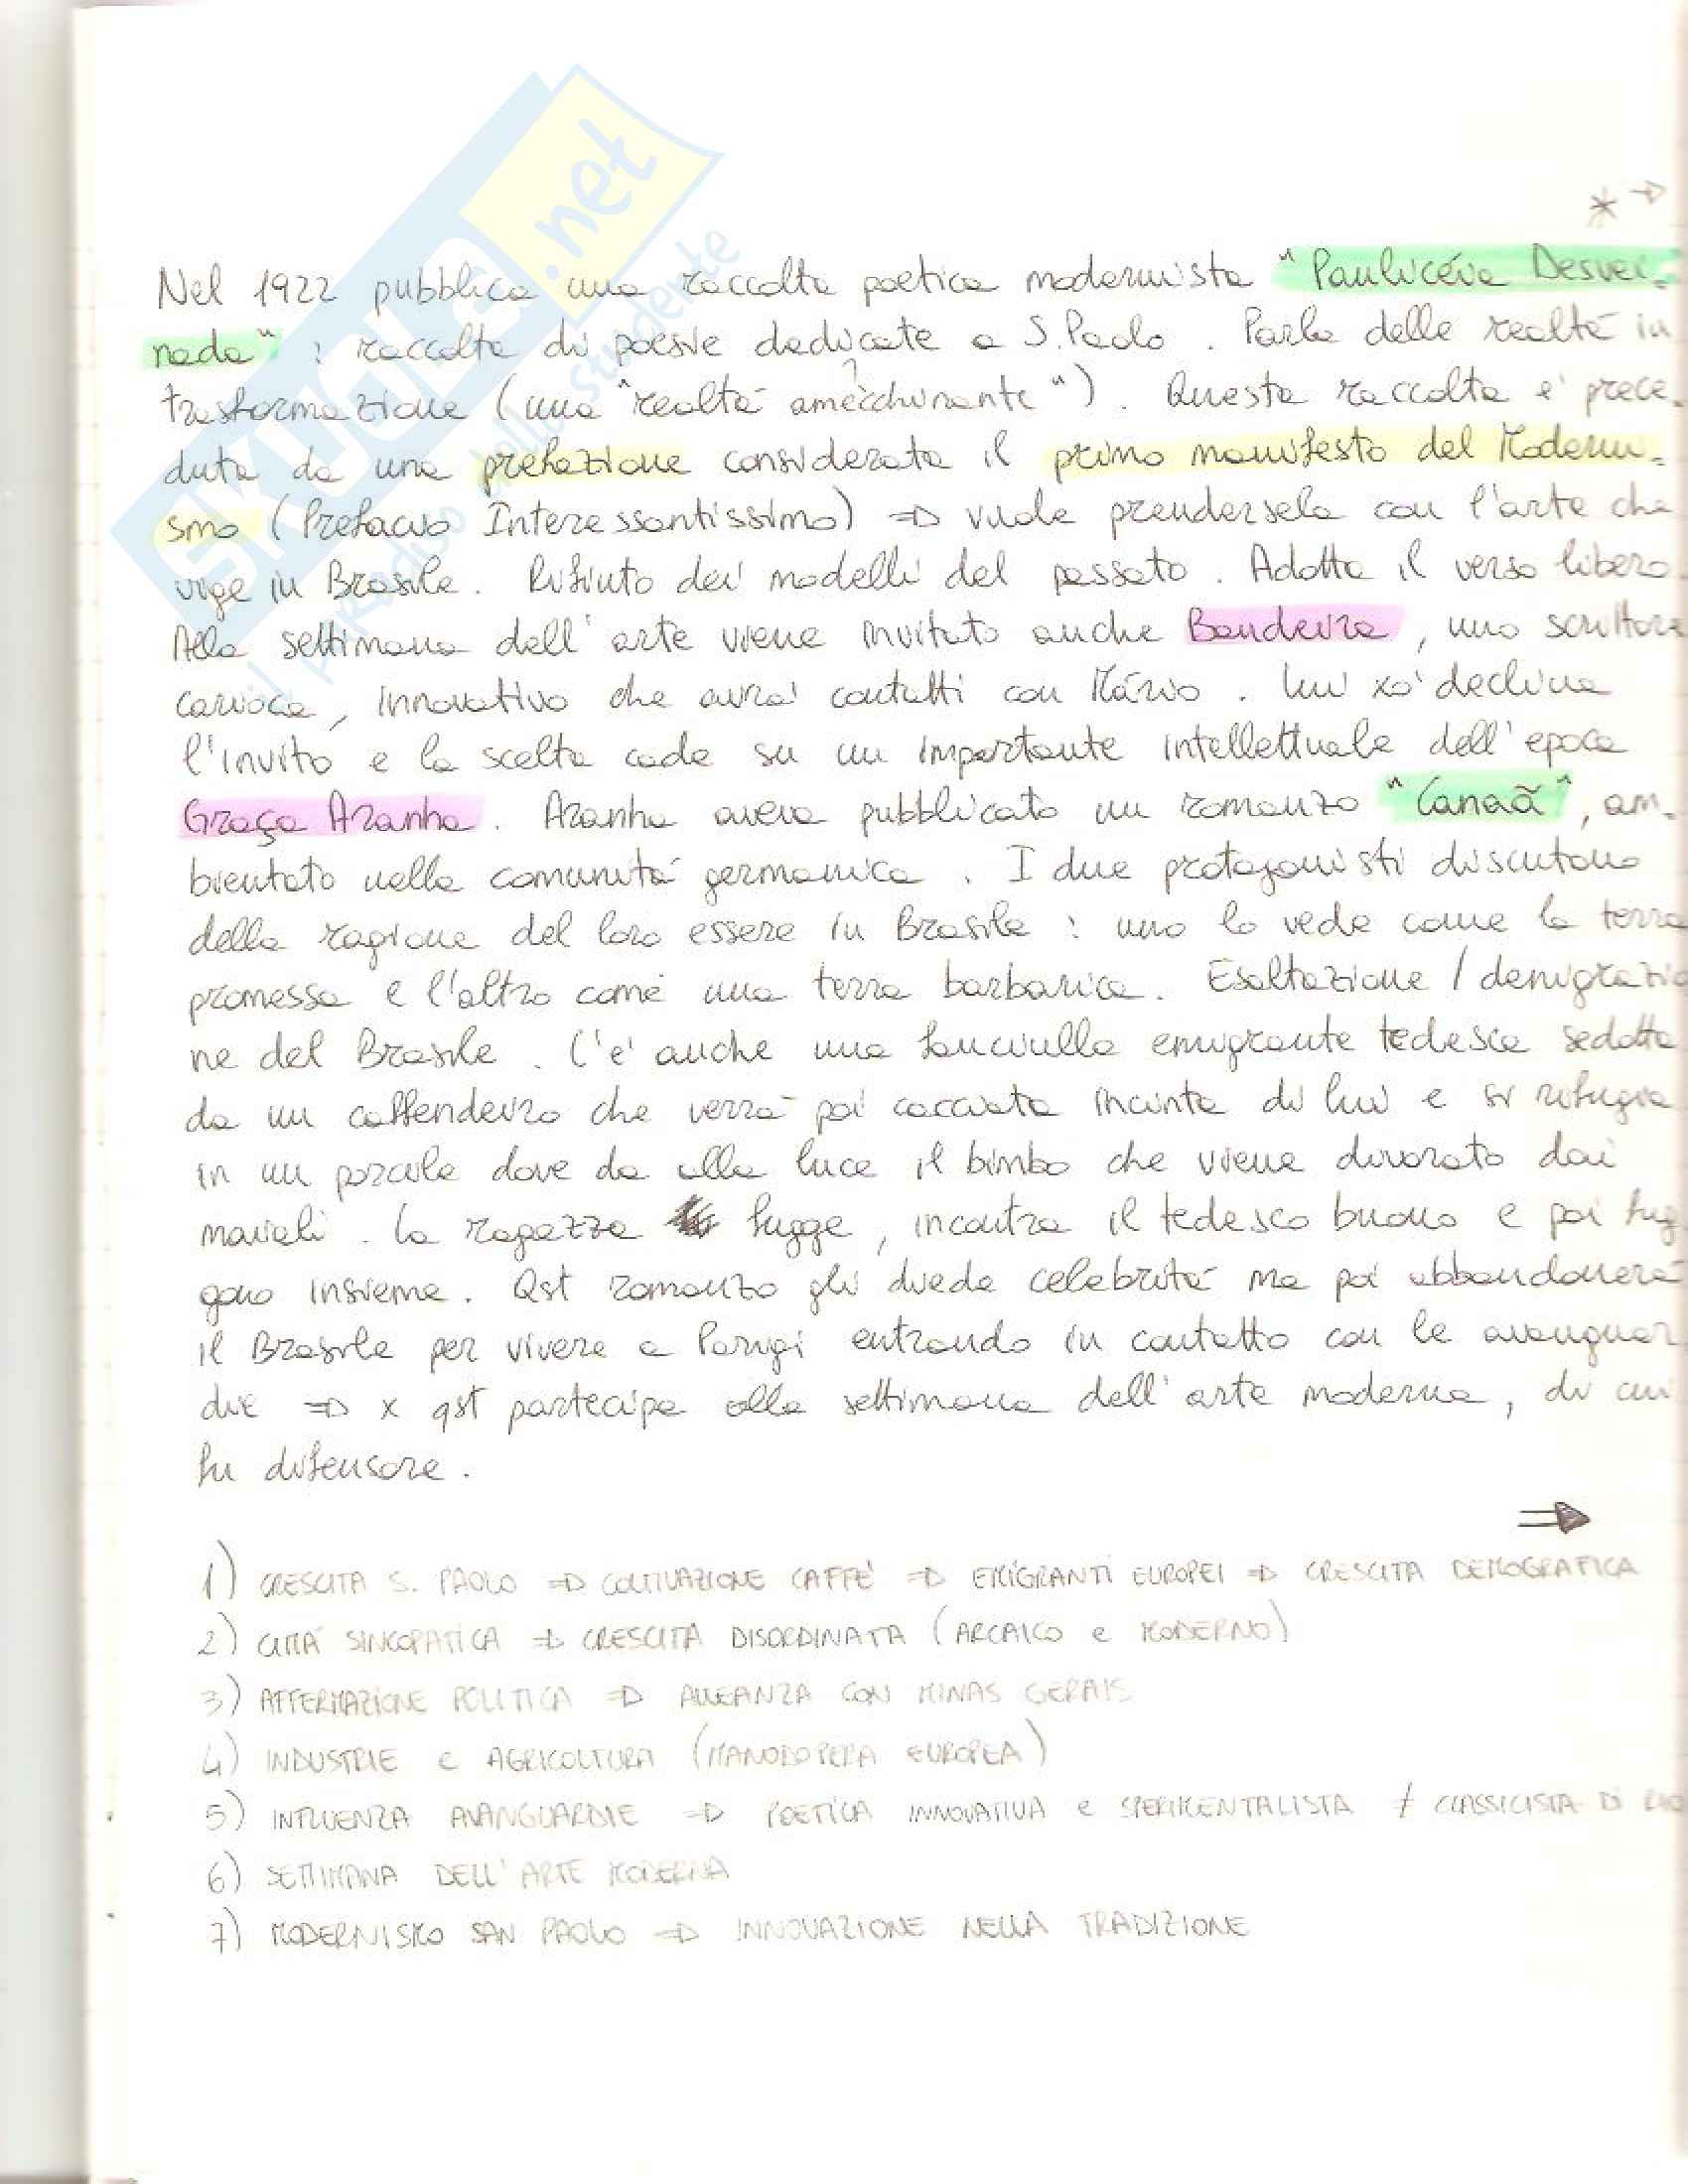 SKUOLA.net
il paradiso dello studente
* →
Nel 1922 pubblica una raccolta poetica modernista "Paulicéia Desvei-
rada" : raccolta di poesie dedicate a S.Paolo . Parla delle realtà in
trasformazione (una "realtà ammecchinante") . Questa raccolta è prece-
duta da una prefazione considerata il primo manifesto del Moderni-
smo (Prefacio Interessantissimo) => vuole prendersela con l'arte che
vige in Brasile . Rifiuto dei modelli del passato . Adotta il verso libero.
Alla settimana dell'arte viene invitato anche Bandeira , uno scrittore
carioca , innovativo che avrà contatti con Mário . Lui xò declina
l'invito e la scelta cade su un importante intellettuale dell'epoca
Graça Aranha . Aranha aveva pubblicato un romanzo "Canaã" , am-
bientato nella comunità germanica . I due protagonisti discutono
della ragione del loro essere in Brasile : uno lo vede come la terra
promessa e l'altro come una terra barbarica . Esaltazione / denigrazio
ne del Brasile . C'è anche una fanciulla emigrante tedesca sedotta
da un caffendeiro che verrà poi cacciata incinta di lui e si rifugia
in un porcile dove da alla luce il bimbo che viene divorato dai
maiali . La ragazza fugge , incontra il tedesco buono e poi fug
gono insieme . Qst romanzo gli diede celebrità ma poi abbandonerà
il Brasile per vivere a Parigi entrando in contatto con le avanguar
die => x qst partecipa alla settimana dell'arte moderna , di cui
fu difensore .
=>
1) CRESCITA S. PAOLO => COLTIVAZIONE CAFFÈ => EMIGRANTI EUROPEI => CRESCITA DEMOGRAFICA
2) CITTÀ SINCOPATICA => CRESCITA DISORDINATA (ARCAICO e MODERNO)
3) AFFERMAZIONE POLITICA => ALLEANZA CON MINAS GERAIS
4) INDUSTRIE e AGRICOLTURA (MANODOPERA EUROPEA)
5) INFLUENZA AVANGUARDIE => POETICA INNOVATIVA e SPERIMENTALISTA ≠ CLASSICISTA DI RIO
6) SETTIMANA DELL'ARTE MODERNA
7) MODERNISMO SAN PAOLO => INNOVAZIONE NELLA TRADIZIONE